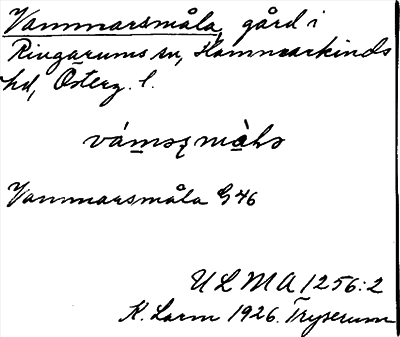 Vammarsmåla, gård i
Ringarums sn, Hammarkinds
hd, Österg. l.
Vammarsmåla G46
ULMA 1256:2
K. Larm 1926. Tryserum